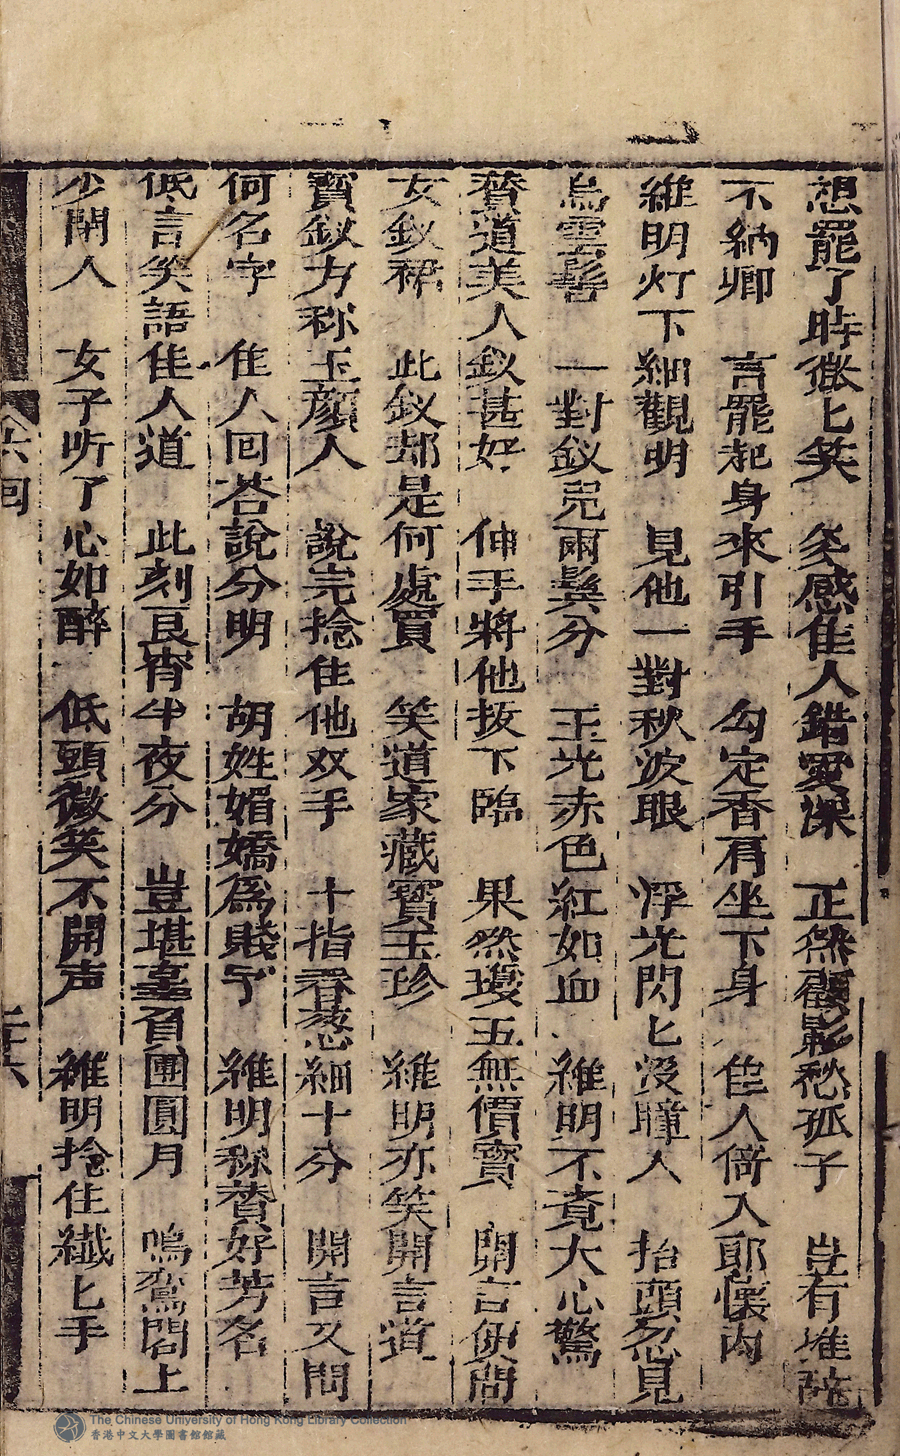 想罷了時微匕笑　多感佳人錯愛深　正然顧影愁孤子　豈有堆辭
不納卿　言罷起身來引手　勾定香肩坐下身　佳人倚入耶懷內
維明灯下細觀明　見他一對秋波眼　浮光閃匕沒瞳人　抬頭忽見
烏雲髻　一對釵兒兩鬓分　玉光赤色紅如血　維明不覔大心驚
賛道美人釵甚好　伸手將他拔下臨　果然瓊玉無價寳　開言便問
女釵裙　此釵却是何處買　笑道家藏寳玉珍　維明亦笑開言道
寳釵方称玉顔人　說完捻住他双手　十指春葱細十分　開言又問
何名字　佳人回荅說分明　胡姓媚嬌爲賤字　維明称賛好芳名
低言笑語佳人道　此刻良宵半夜分　豈堪辜負團圓月　鳴鴛閣上
少閑人　女子听了心如醉　低頭微笑不開声　維明捻住纖匕手
六回
二十六
The Chinese University of Hong Kong Library Collection
香港中文大學圖書館館藏